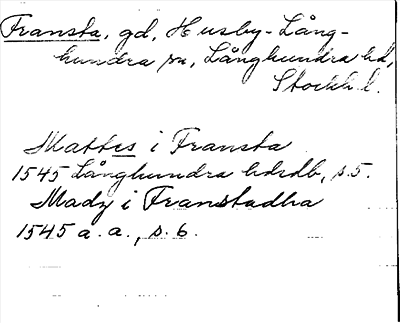 Fransta, gd, Husby-Lång-
hundra sn, Långhundra hd,
Stockh. l.
Mattes i Fransta
1545 Långhundra hdrdb, s. 5.
Madz i Franstadha
1545 a. a., s. 6.